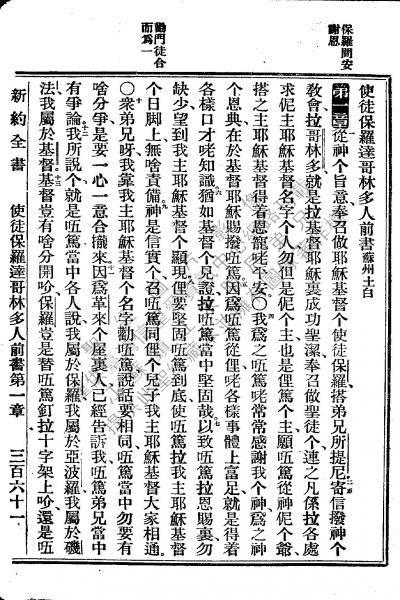 保羅問安謝恩
勸門徒合而爲一
使徒保羅達哥林多人前書 蘇州土白
第一章 從神个旨意奉召做耶穌基督个使徒保羅搭弟兄所提尼寄信撥神个
教會拉哥林多就是拉基督耶穌裏成功聖潔奉召做聖徒个連之凡係拉各處
求伲主耶穌基督名字个人勿但是伲个主也是俚篤个主願㕶篤從神伲个爺
搭之主耶穌基督得着恩寵咾平安○我爲之㕶篤咾常常感謝我个神爲之神
个恩典在於基督耶穌賜撥㕶篤因爲㕶篤從俚咾各樣事體上富足就是得着
各樣口才咾知識猶如基督个見證拉㕶篤當中堅固哉以致㕶篤拉恩賜裏勿
缺少望到我主耶穌基督个顯現俚要堅固㕶篤到底使㕶篤拉我主耶穌基督
个日脚上無啥責備神是信實个召㕶篤同俚个兒子我主耶穌基督大家相通
○衆弟兄呀我靠我主耶穌基督个名字勸㕶篤說話要相同㕶篤當中勿要有
啥分爭是要一心一意合攏來因爲革來个屋裏人已經告訴我㕶篤弟兄當中
有爭論我所說个就是㕶篤當中各人說我屬於保羅我屬於亞波羅我屬於磯
法我屬於基督基督豈有啥分開吤保羅豈是替㕶篤釘拉十字架上吤還是㕶
新約全書 使徒保羅達哥林多人前書第一章 三百六十一